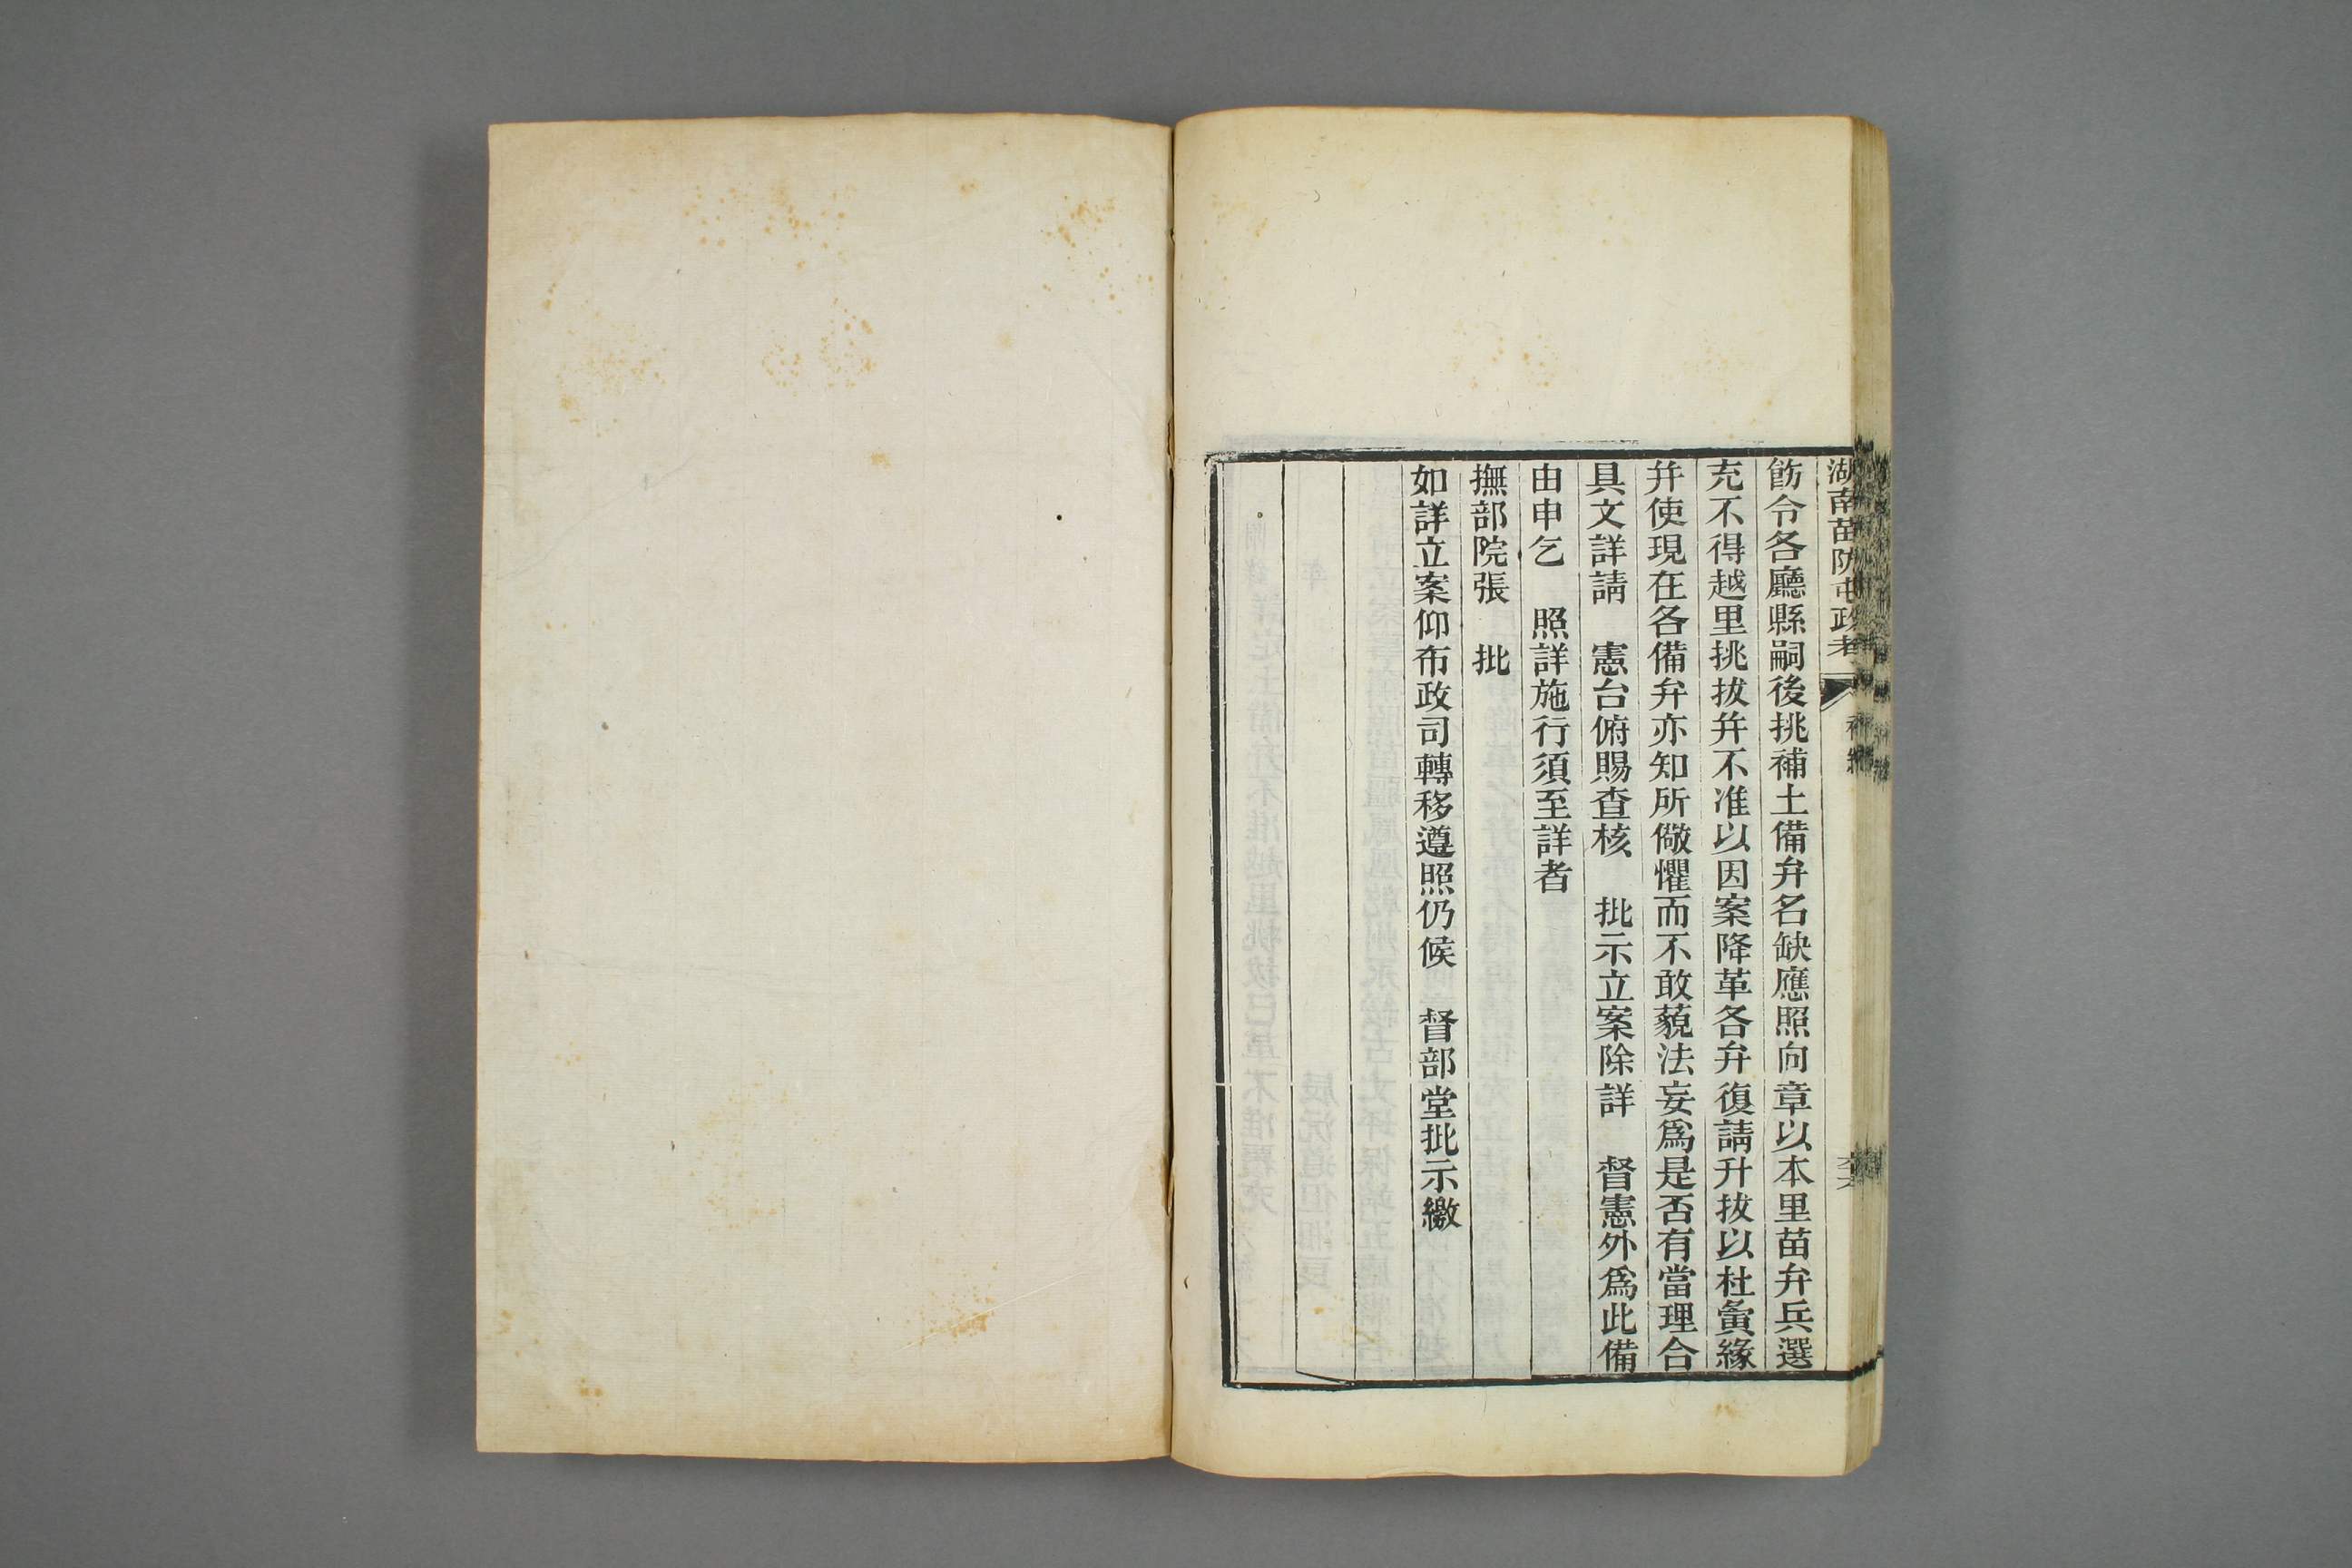 湖南苗防屯政考
補編
飭令各廳縣嗣後挑補土備弁名缺應照向章以本里苗弁兵選
充不得越里挑拔并不准以因案降革各弁復請升拔以杜夤緣
并使現在各備弁亦知所儆懼而不敢藐法妄爲是否有當理合
具文詳請　憲台俯賜查核　批示立案除詳　督憲外爲此備
由申乞　照詳施行須至詳者
撫部院張　批
如詳立案仰布政司轉移遵照仍候　督部堂批示繳